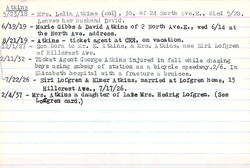 Atkins
5/23/19 - Mrs. Lelia Atkins (col), 30, of 24 North Ave.E., died 5/20.
Leaves her husband David.
6/19/19 - Marie Gibbs & David Atkins of 2 North Ave.E., wed 6/14 at
the North Ave. address.
8/21/19 - Atkins - ticket agent at CRR, on vacation.
12/1/21 - Son born to Mr. E. Atkins, & Mrs. Atkins, nee Siri Lofgren
of Hillcrest Ave.
2/11/32 - Ticket Agent George Atkins injured in fall while chasing
boys using subway of station as a bicycle speedway, 2/6. In
Elizabeth hospital with a fracture & bruises.
7/22/26 - Siri Lofgren & Elmer Atkins, married at Lofgren home, 15
Hillcrest Ave., 7/17/26.
2/4/37 - Mrs. Atkins a daughter of late Mrs. Hedvig Lofgren. (See
Lofgren card.)